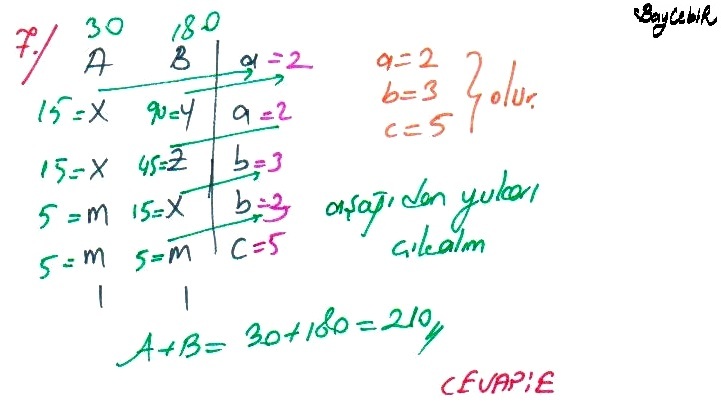 BayCebiR
30 180
7./ A B a=2
15=X 90=Y a=2
15=X 45=Z b=3
5=m 15=X b=3
5=m 5=m C=5
1 1
a=2
b=3
c=5
olur.
aşağıdan yukarı
çıkalım
A+B= 30+180=210//
CEVAP:E